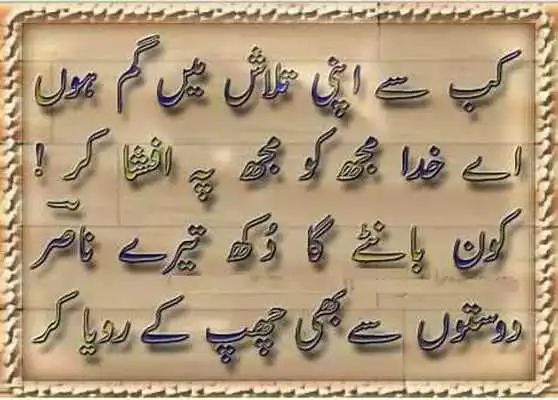 کب سے اپنی تلاش میں گم ہوں
اے خدا مجھ کو مجھ پہ افشا کر !
کون بانٹے گا دُکھ تیرے ناصر
دوستوں سے بھی چھپ کے رویا کر